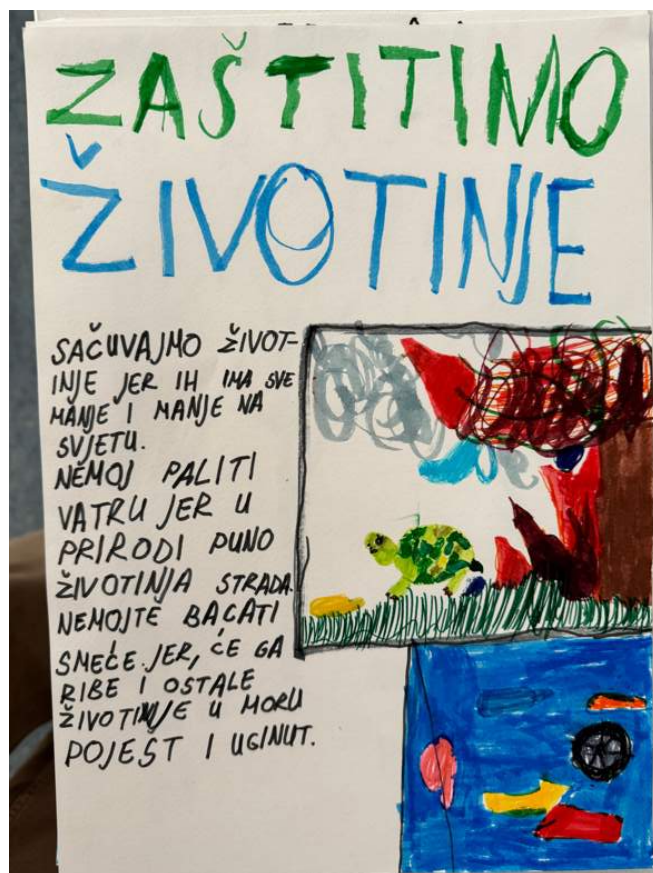 ZAŠTITIMO
ŽIVOTINJE
SAČUVAJMO ŽIVOT-
INJE JER IH IMA SVE
MANJE I MANJE NA
SVJETU.
NEMOJ PALITI
VATRU JER U
PRIRODI PUNO
ŽIVOTINJA STRADA.
NEMOJTE BACATI
SMEĆE. JER, ĆE GA
RIBE I OSTALE
ŽIVOTINJE U MORU
POJEST I UGINUT.